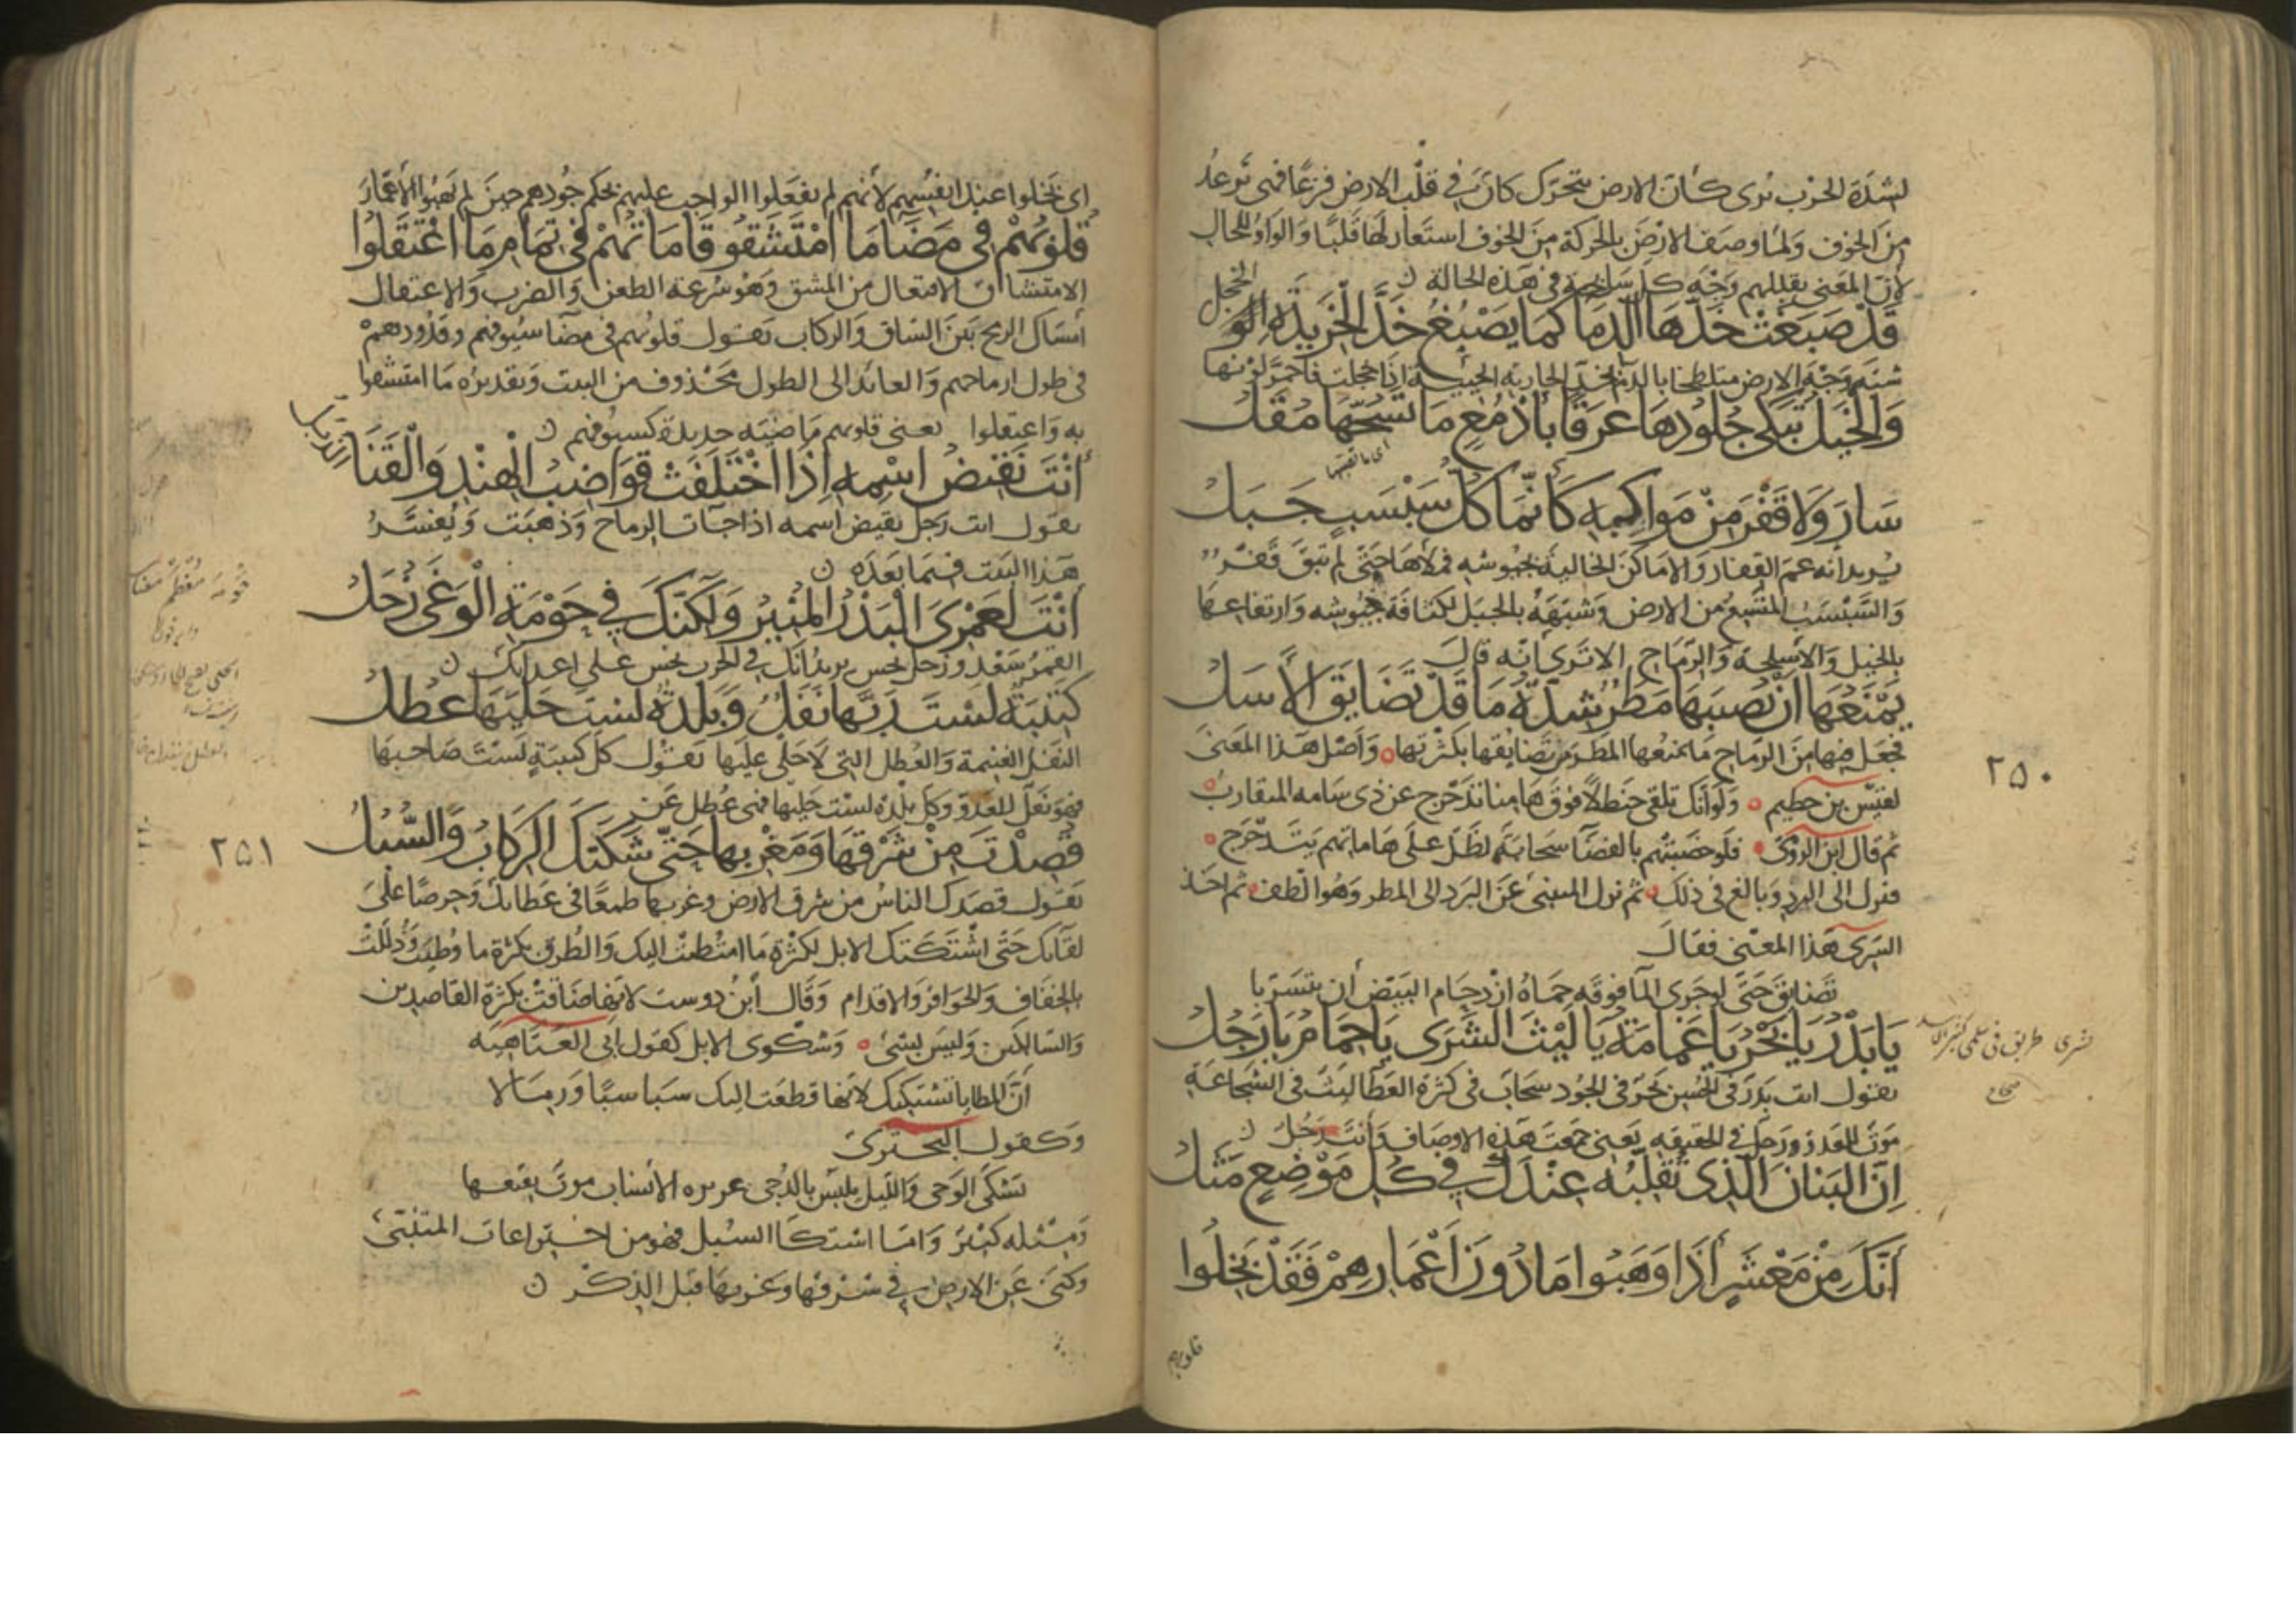 لشدة الحرب ترى كأن الارض تتحرك كأن في قلب الارض فزعا فهي ترعد
من الخوف ولما وصف الارض بالحركة من الخوف استعار لها قلبا والواو للحال
لان المعنى يقبلهم وجه كل سابحة في هذه الحالة
قَدْ صَبَغَتْ خَدَّهَا الدِّمَا كَمَا يَصْبُغُ خَدَّ الْخَرِيدَةِ الْخَجَلُ
شبه وجه الارض متلطخا بالدم بخد الجارية الحيية اذا خجلت فاحمر لونها
وَالْخَيْلُ تَبْكِي جُلُودُهَا عَرَقًا بِأَدْمُعٍ مَا تَسُحُّهَا مُقَلُ
سَارَ وَلَا قَفْرَ مِنْ مَوَاكِبِهِ كَأَنَّمَا كُلُّ سَبْسَبٍ جَبَلُ
يريد انه عم القفار والاماكن الخالية بجيوشه فملأها حتى لم تبق قفر
والسبسب المتسع من الارض وشبهه بالجبل لكثافة جيوشه وارتفاعها
بالخيل والأسلحة والرماح الا ترى انه قال
يَمْنَعُهَا أَنْ يُصِيبَهَا مَطَرٌ شِدَّةُ مَا قَدْ تَضَايَقَ الْأَسَلُ
فجعل فيها من الرماح ما يمنعها المطر من تضايقها بكثرتها وأصل هذا المعنى
لقيس بن خطيم ولو انك تلقي حنظلا فوق هامنا تدحرج عن ذي سامه المتقارب
ثم قال ابن الرومي فلو حصبتهم بالفضا سحابة لظل على هاماتهم يتدحرج
فنزل الى البرد وبالغ في ذلك ثم نزل المتنبي عن البرد الى المطر وهو الطف ثم اخذ
السري هذا المعنى فقال
تضايق حتى لو جرى الما فوقه حماه ازدحام البيض أن يتسربا
يَا بَدْرُ يَا بَحْرُ يَا غَمَامَةُ يَا لَيْثَ الشَّرَى يَا حِمَامُ يَا رَجُلُ
يقول انت بدر في الحسن بحر في الجود سحاب في كثرة العطا ليث في الشجاعة
موت للعدو ورجل في الحقيقه يعنى جمعت هذه الاوصاف وأنت رجل
إِنَّ الْبَنَانَ الَّذِي تُقَلِّبُهُ عِنْدَكَ فِي كُلِّ مَوْضِعٍ مَثَلُ
أَنَّكَ مِنْ مَعْشَرٍ إِذَا وَهَبُوا مَا دُونَ أَعْمَارِهِمْ فَقَدْ بَخِلُوا
قلوبهم
٢٥٠
اى بخلوا عند انفسهم لأنهم لم يفعلوا الواجب عليهم بحكم جودهم حين لم يهبوا الأعمار
قُلُوبُهُمْ فِي مَضَاءِ مَا امْتَشَقُوا قَامَاتُهُمْ فِي تَمَامِ مَا اعْتَقَلُوا
الامتشاق الافتعال من المشق وهو سرعة الطعن والضرب والاعتقال
امساك الرمح بين الساق والركاب يقول قلوبهم في مضا سيوفهم وقدودهم
في طول ارماحهم والعائد الى الطول محذوف من البيت وتقديره ما امتشقوا
به واعتقلوا يعنى قلوبهم ماضية حديدة كسيوفهم
أَنْتَ نَقِيضُ اسْمِهِ إِذَا اخْتَلَفَتْ قَوَاضِبُ الْهِنْدِ وَالْقَنَا الذُّبُلُ
يقول انت رجل نقيض اسمه اذا جات الرماح وذهبت ويفسر
هذا البيت فيما بعده
أَنْتَ لَعَمْرِي الْبَدْرُ الْمُنِيرُ وَلَكِنَّكَ فِي حَوْمَةِ الْوَغَى زُحَلُ
القمر سعد وزحل نحس يريد انك في الحرب نحس على اعدائك
كَتِيبَةٌ لَسْتَ رَبَّهَا نَفَلٌ وَبَلْدَةٌ لَسْتَ حَلْيَهَا عُطُلُ
النفل الغنيمة والعطل التي لا حلى عليها يقول كل كتيبة لست صاحبها
فهو نفل للعدو وكل بلدة لست حليها فهى عطل
قُصِدْتَ مِنْ شَرْقِهَا وَمَغْرِبِهَا حَتَّى شَكَتْكَ الرِّكَابُ وَالسُّبُلُ
يقول قصدك الناس من شرق الارض وغربها طمعا في عطائك وحرصا على
لقائك حتى اشتكتك الابل لكثرة ما امتطيت اليك والطرق بكثرة ما وطئت وذللت
بالخفاف والحوافر والاقدام وقال أبن دوست لانها ضاقت بكثرة القاصدين
والسالكين وليس بشئ وشكوى الابل كقول ابى العتاهيه
أن المطايا تشتكيك لانها قطعت اليك سباسبا ورمالا
وكقول البحترى
تشكى الوجى والليل ملتبس بالدجى غريره الأنساب مرت بقيعها
ومثله كثير واما اشتكا السبل فهو من اختراعات المتنبى
وكنى عن الارض في شرقها وغربها قبل الذكر
٢٥١